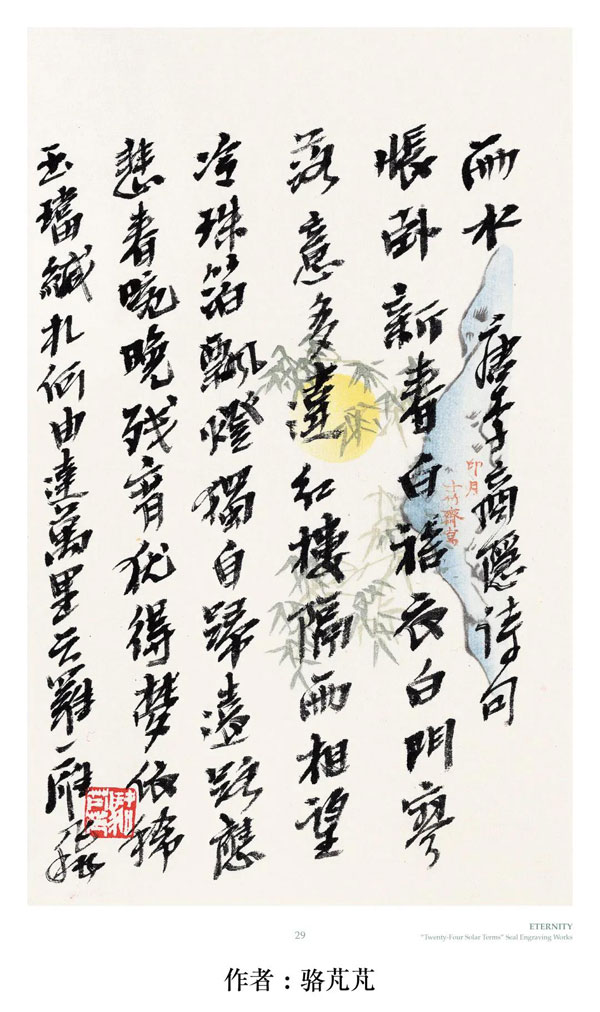 雨水 唐李商隱詩句
悵卧新春白袷衣白門寥
落意多違紅樓隔雨相望
冷珠箔飄燈獨自歸遠路應
悲春晼晚残宵犹得梦依稀
玉璫緘札何由達萬里云羅一雁飛
印月
十竹齋寫
29
ETERNITY
"Twenty-Four Solar Terms" Seal Engraving Works
作者：骆芃芃